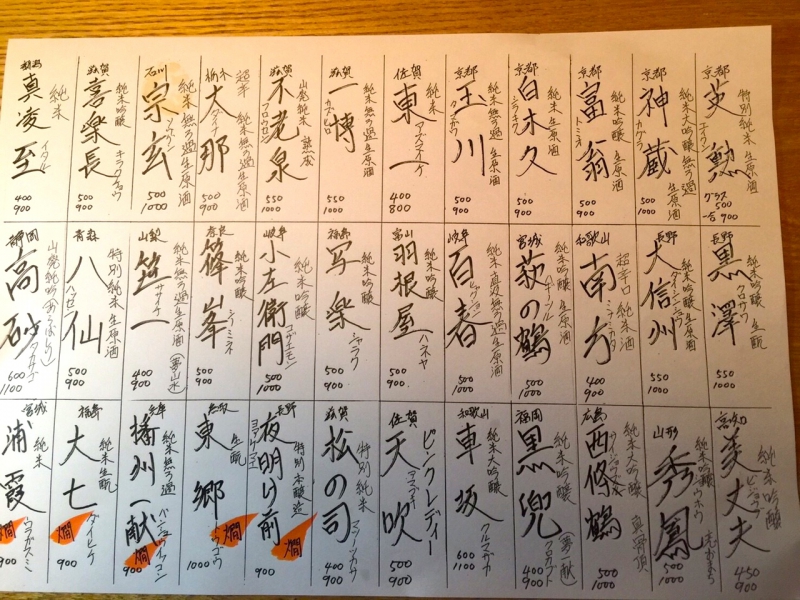 京都
英勲
特別純米
生原酒
グラス
500
一合 900
京都
神蔵
カグラ
純米大吟醸 無ろ過
生原酒
550
1000
京都
富翁
トミオウ
純米吟醸
生原酒
500
1000
京都
白木久
シラキク
純米
生原酒
500
1000
京都
玉川
純米
無ろ過
生原酒
500
1000
佐賀
東一
アズマイチ
純米
400
800
滋賀
一博
カズヒロ
純米無ろ過
生原酒
550
1000
滋賀
不老泉
フロウセン
山廃純米
熟成
550
1000
栃木
大那
ダイナ
超辛
純米
無ろ過
生原酒
500
900
石川
宗玄
ソウゲン
純米
無ろ過
生原酒
500
1000
滋賀
喜楽長
キラクチョウ
純米吟醸
500
900
真凌至
イタル
純米
400
900
長野
黒澤
クロサワ
純米
生酛
500
900
長野
大信州
ダイシンシュウ
純米吟醸
550
1000
和歌山
南方
ミナカタ
超辛口
純米
生原酒
400
900
宮城
萩の鶴
ハギノツル
純米吟醸
生原酒
500
1000
岐阜
百春
純米
無ろ過
生原酒
500
1000
富山
羽根屋
ハネヤ
純米吟醸
500
900
福島
写楽
シャラク
純米吟醸
500
900
岐阜
小左衛門
コザエモン
純米吟醸
500
1000
奈良
篠峯
シノミネ
純米吟醸
500
900
山梨
笹一
ササイチ
純米
無ろ過
生原酒
(夢山水)
400
900
青森
八仙
ハッセン
特別純米
生原酒
500
900
静岡
高砂
タカサゴ
山廃純吟
(あらばしり)
600
1100
美丈夫
ビジョウフ
純米吟醸
450
900
山形
秀鳳
シュウホウ
純米吟醸
500
1000
広島
西條鶴
純米吟醸
真骨頂
500
1000
福岡
黒兜
クロカブト
純米吟醸
(夢一献)
400
900
和歌山
車坂
クルマザカ
純米大吟醸
600
1100
佐賀
天吹
アマブキ
ピンクレディー
500
900
滋賀
松の司
マツノツカサ
特別純米
400
900
長野
夜明け前
ヨアケマエ
特別本醸造
燗
900
鳥取
東郷
トウゴウ
生酛
燗
1000
兵庫
播州一献
バンシュウイッコン
純米
無ろ過
燗
900
福島
大七
ダイシチ
純米生酛
燗
900
宮城
浦霞
ウラガスミ
純米
燗
900